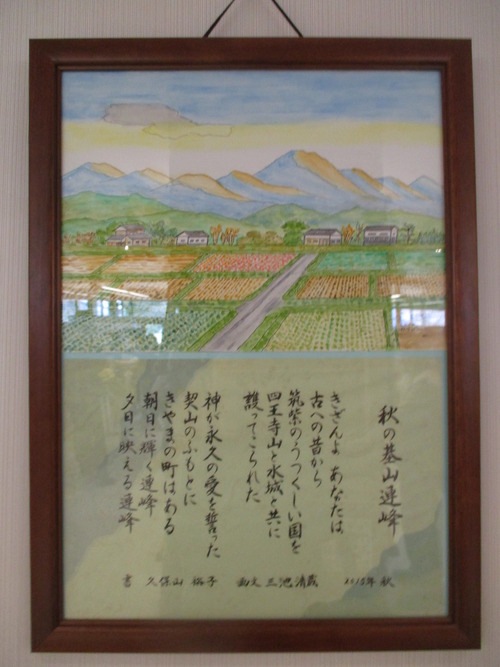 秋の基山連峰
きざんよ あなたは
古への昔から
筑紫のうつくしい国を
四王寺山と水城と共に
護ってこられた
神が永久の愛を誓った
契山のふもとに
きやまの町はある
朝日に輝く連峰
夕日に映える連峰
書 久保山 裕子 画文 三池清蔵 2010年 秋